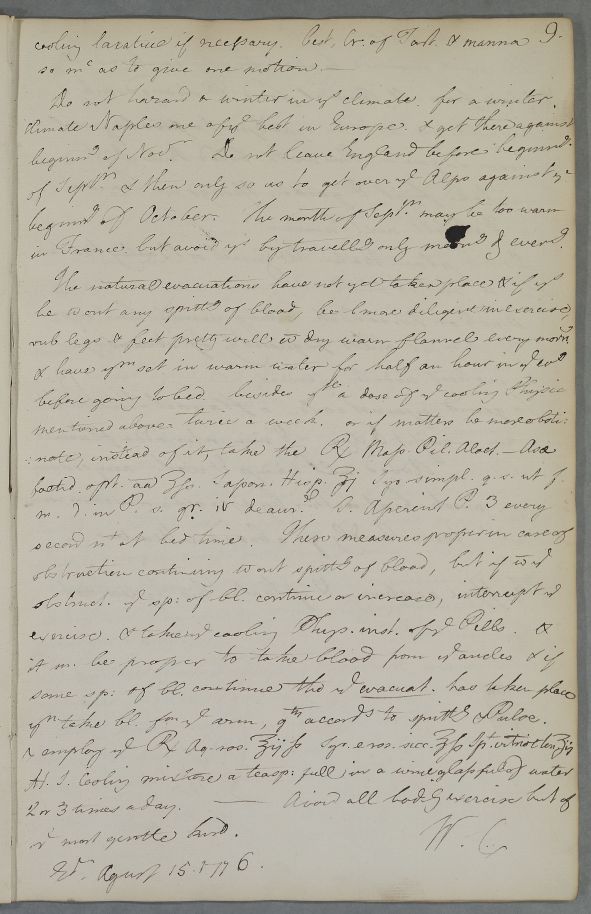 cooling laxative if necessary. best, Cr. of Tart. & manna 9.
so mc as to give one motion. —
Do not hazard a winter in ys climate, for a winter
climate Naples one of ye best in Europe. & get there against
beginng of Novr. Do not leave England before beginng
of Septr. & then only so as to get over ye Alps against ye
beginng of October. The month of Septr. may be too warm
in France but avoid ys by travellg only morng & eveng.
The natural evacuations have not yet taken place & if ys
be wout any spittg of blood, be more diligent in exercise,
rub legs & feet pretty well w dry warm flannel every morng
& have ym set in warm water for half an hour in ye eveg
before going to bed besides a dose of ye cooling Physic
mentioned above twice a week. or if matters be more obsti-
:nate, instead of it, take the Rx Mass. Pil. Aloet. — Asæ
foetid. opt. aa ʒss. Sapon. Hisp. ʒj Syr. simpl. q. s. ut f.
m. in P. s. gr. iv deaur. S. Aperient P. 3 every
second nt at bed time. These measures proper in case of
obstruction continuing wout spittg of blood, but if w ye
obstruct. ye sp: of bl. continue or increase, interrupt ye
exercise. & take ye cooling Phys. inst. of ye Pills. &
it m. be proper to take blood from ye ancles & if
some sp: of bl. continue tho ye evacuat. has taken place
yn take bl. from ye arm, accordg to spittg & Pulse.
& employ ye Rx Aq. ros. ʒij ss Syr. e ros. sicc. ʒss Spt. vitriol ten ʒij
M. S. Cooling mixture a teasp: full in a wine glass full of water
2 or 3 times a day. — Avoid all bodily exercise but of
ye most gentle kind.
W. C.
Edr. Agust 15. 1776.